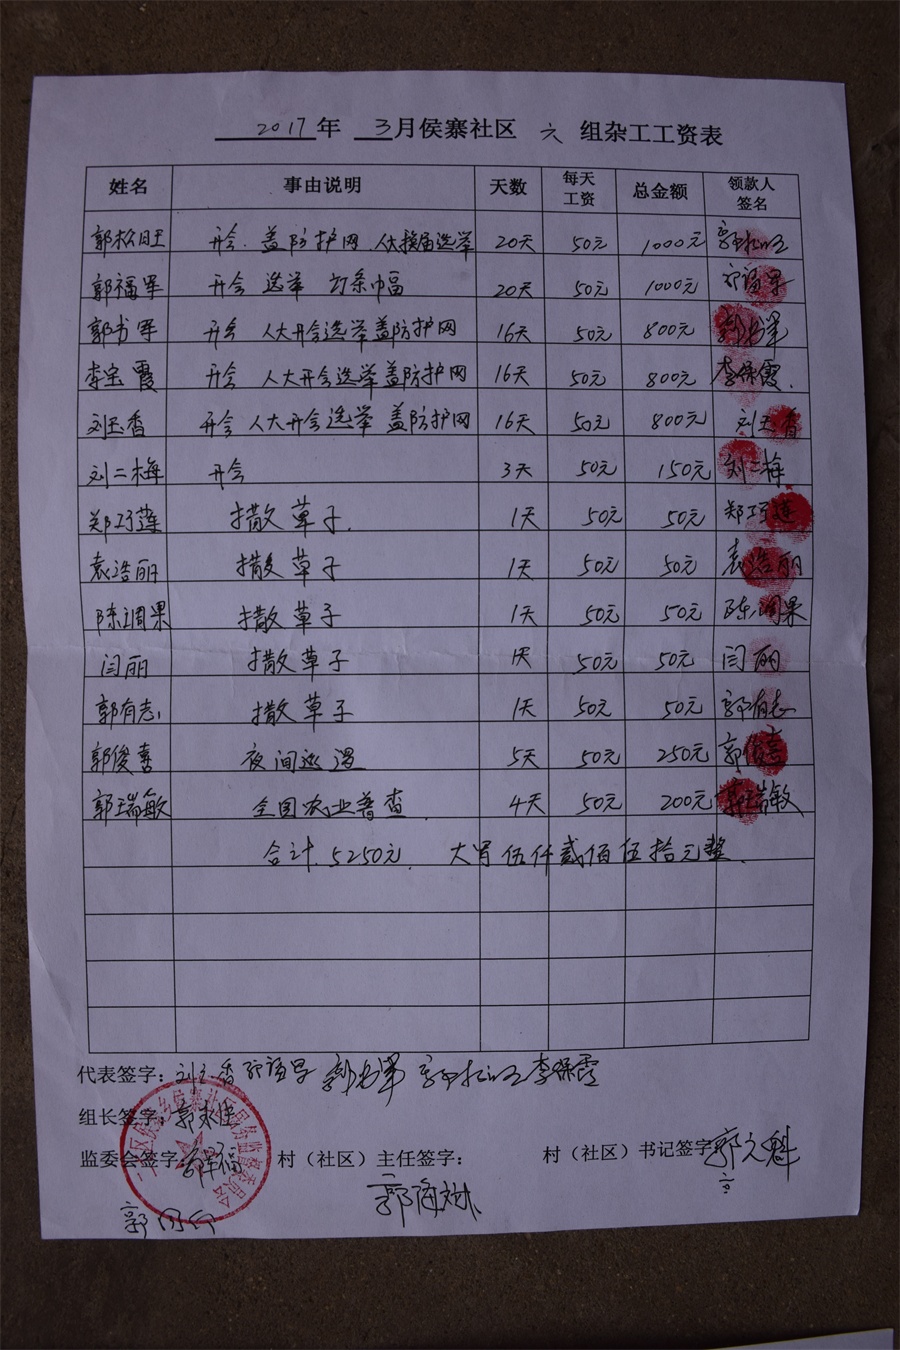 2017年 3月侯寨社区 六 组杂工工资表
姓名 事由说明 天数 每天工资 总金额 领款人签名
郭松旺 开会.盖防护网.人大换届选举 20天 50元 1000元
郭福军 开会 选举 打条巾幅 20天 50元 1000元 郭福军
郭书军 开会 人大开会选举盖防护网 16天 50元 800元 郭书军
李宝霞 开会 人大开会选举盖防护网 16天 50元 800元 李保霞.
刘玉香 开会 人大开会选举 盖防护网 16天 50元 800元 刘玉香
刘二梅 开会 3天 50元 150元 刘二梅
郑巧莲 撒草子. 1天 50元 50元 郑巧莲
袁浩丽 撒草子 1天 50元 50元 袁浩丽
陈调果 撒草子 1天 50元 50元 陈调果
闫丽 撒草子 1天 50元 50元 闫丽
郭有志 撒草子 1天 50元 50元 郭有志
郭俊喜 夜间巡逻 5天 50元 250元 郭俊喜
郭瑞敏 全国农业普查. 4天 50元 200元 郭瑞敏
合计.5250元. 大写伍仟贰佰伍拾元整.
代表签字：刘玉香 郭福军 郭书军 李保霞
组长签字：
监委会签字 村（社区）主任签字： 村（社区）书记签字 郭文魁